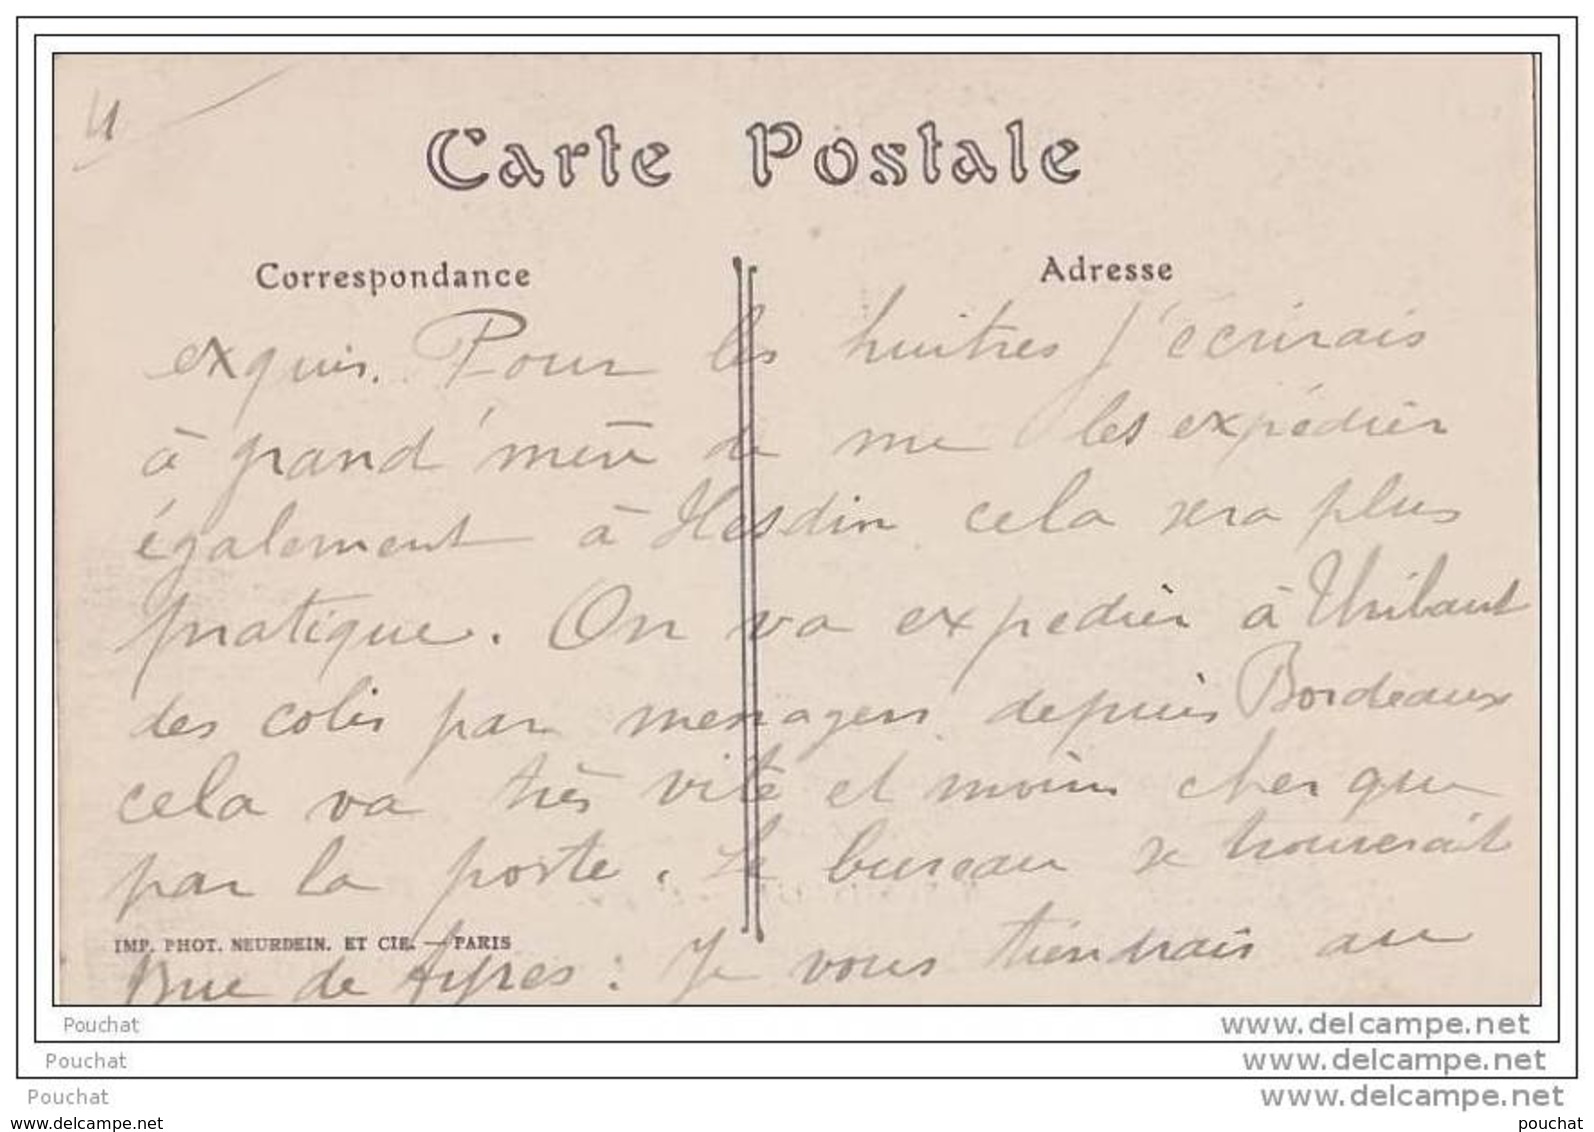 4
Carte Postale
Correspondance
Adresse
exquis. Pour les huitres j'écrirais
à grand'mère de me les expédier
également à Hesdin cela sera plus
pratique. On va expedier à Thibaut
des colis par messagers depuis Bordeaux
cela va très vite et moins cher que
par la poste. Le bureau se trouverait
IMP. PHOT. NEURDEIN. ET CIE. — PARIS
Rue de Ayres : Je vous tiendrais au
Pouchat www.delcampe.net
Pouchat www.delcampe.net
Pouchat www.delcampe.net
www.delcampe.net pouchat